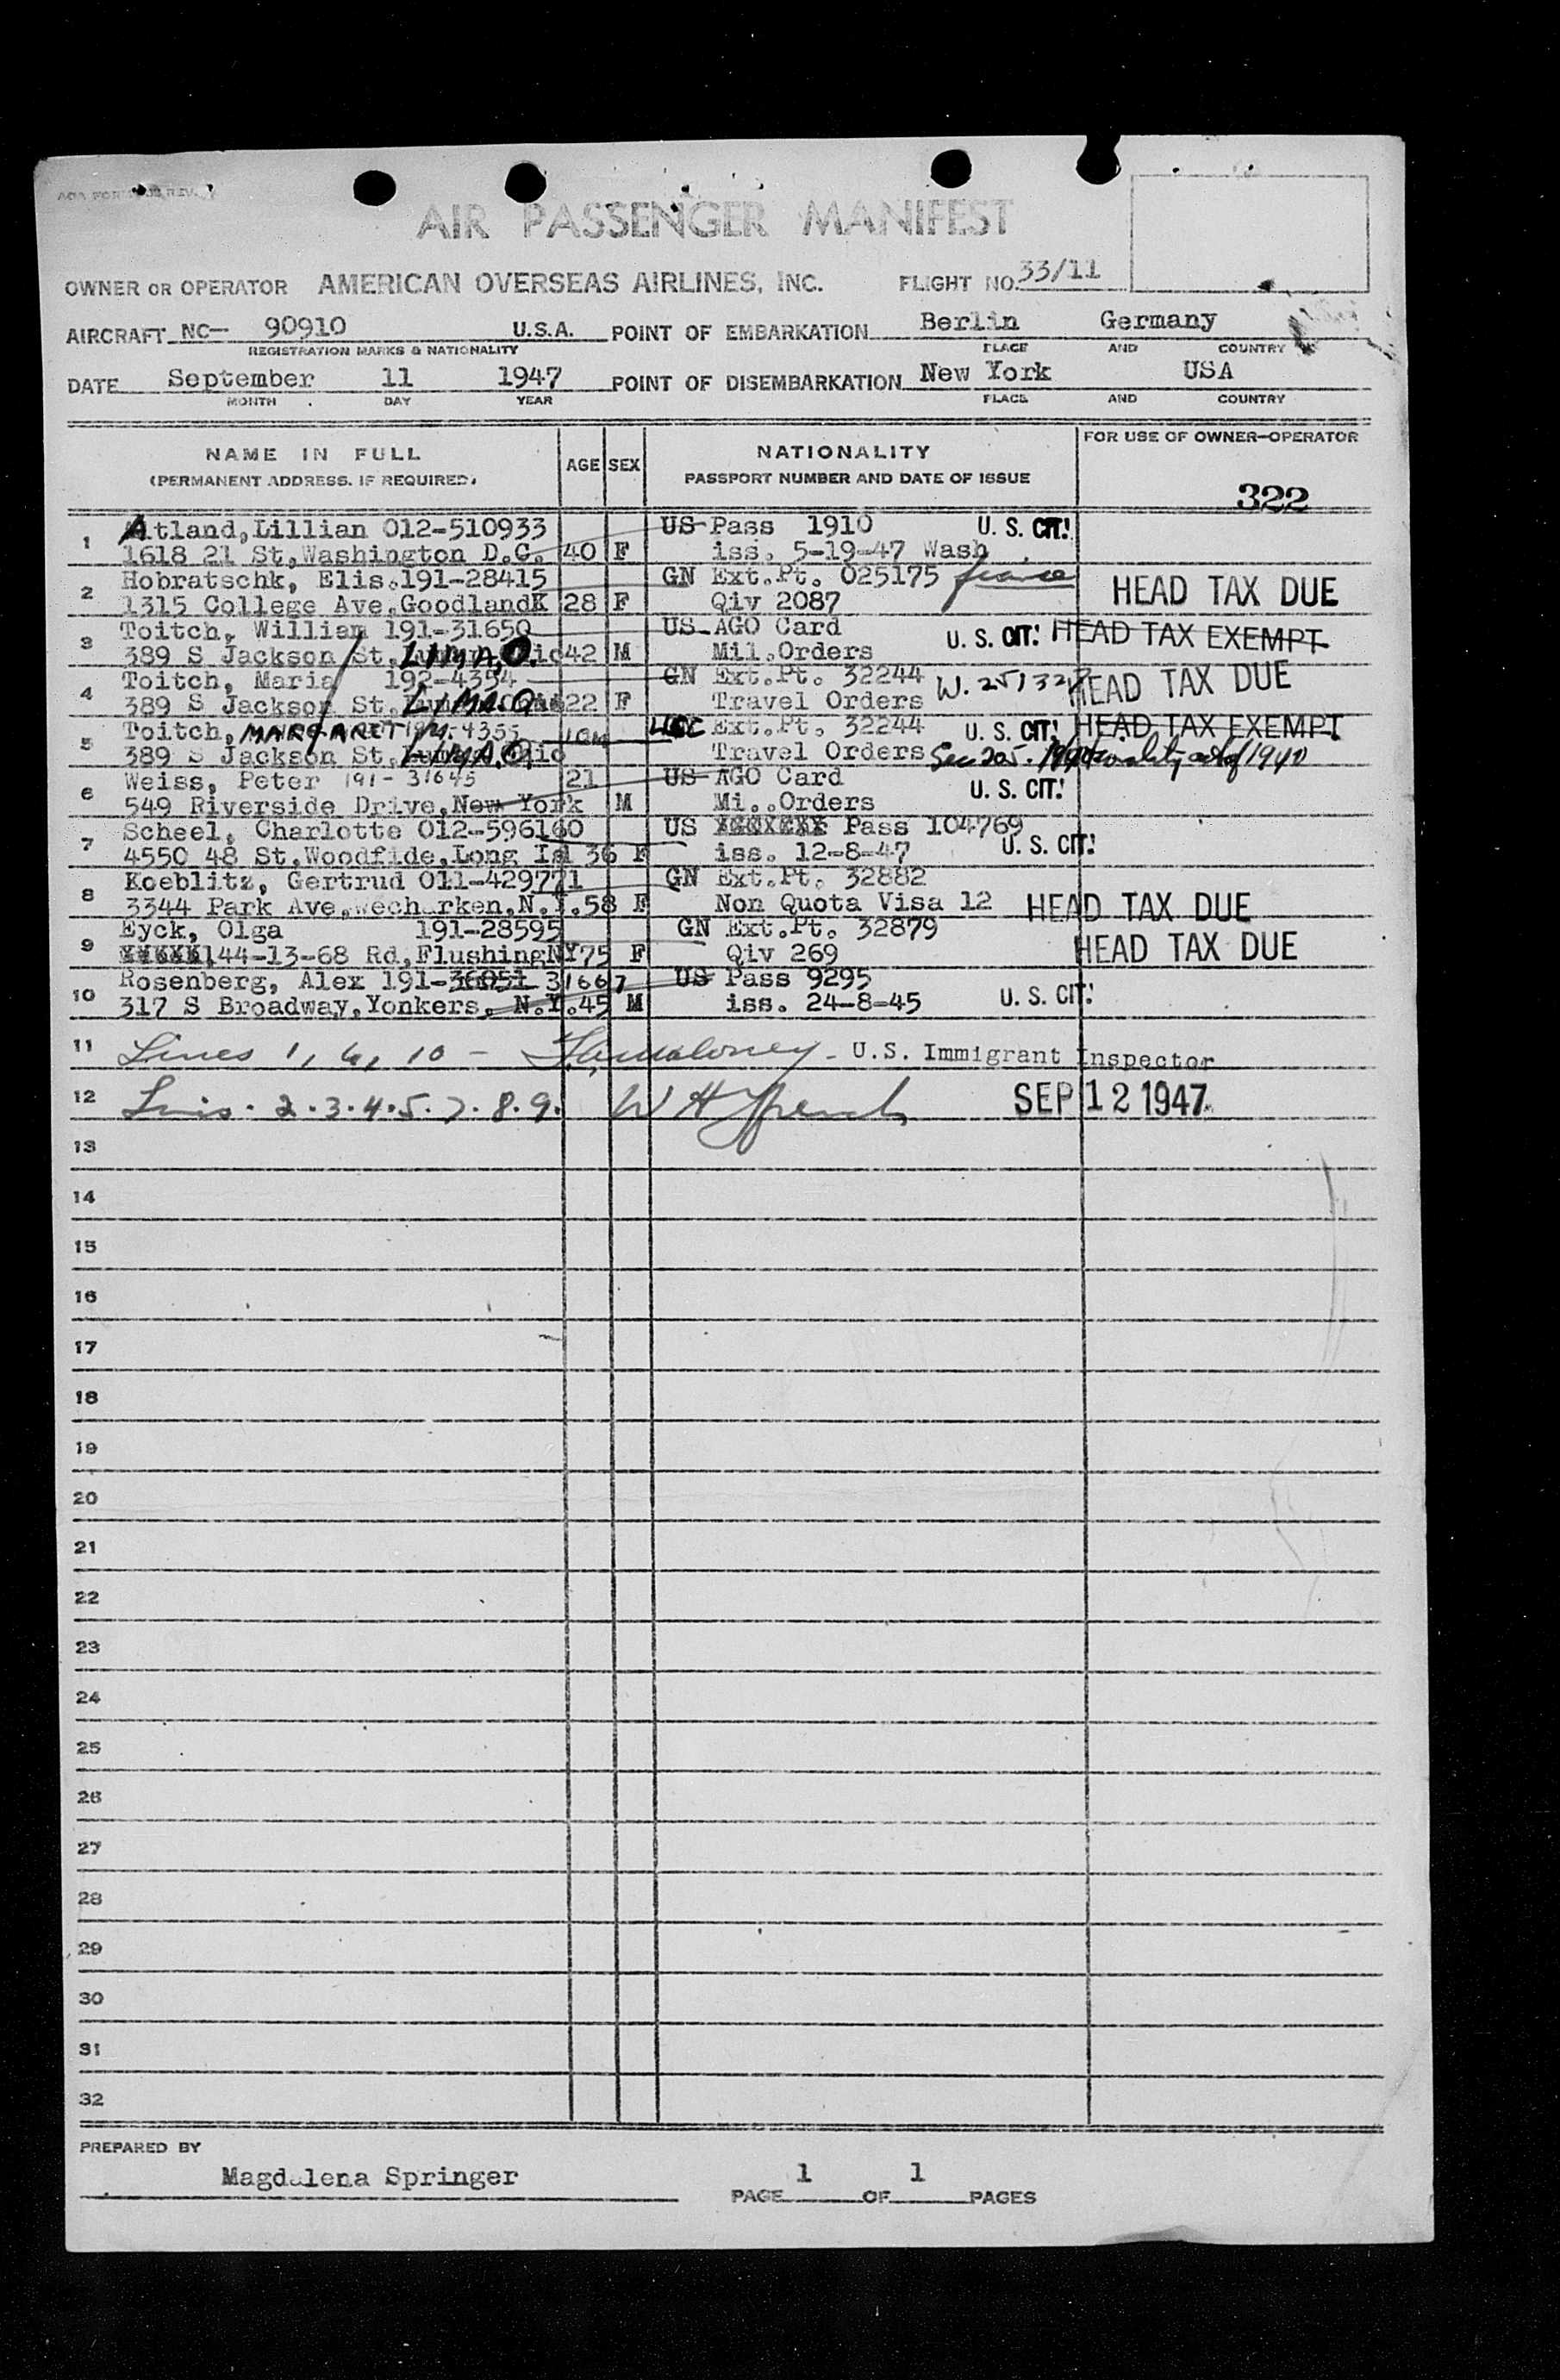 AIR PASSENGER MANIFEST
OWNER OR OPERATOR AMERICAN OVERSEAS AIRLINES, INC. FLIGHT NO. 33/11
AIRCRAFT NC- 90910 U.S.A. POINT OF EMBARKATION Berlin Germany
REGISTRATION MARKS & NATIONALITY PLACE AND COUNTRY
DATE September 11 1947 POINT OF DISEMBARKATION New York USA
MONTH DAY YEAR PLACE AND COUNTRY
NAME IN FULL AGE SEX NATIONALITY FOR USE OF OWNER-OPERATOR
(PERMANENT ADDRESS, IF REQUIRED) PASSPORT NUMBER AND DATE OF ISSUE
322
1 Atland,Lillian 012-510933 US Pass 1910 U. S. CIT.
1618 21 St,Washington D.C. 40 F iss. 5-19-47 Wash
2 Hobratschk, Elis.191-28415 GN Ext.Pt. 025175 HEAD TAX DUE
1315 College Ave,GoodlandK 28 F Qiv 2087
3 Toitch, William 191-31650 US AGO Card U. S. CIT. HEAD TAX EXEMPT
389 S Jackson St. LIMA,O. 42 M Mil.Orders
4 Toitch, Maria 192-4354 GN Ext.Pt. 32244 HEAD TAX DUE
389 S Jackson St. LIMA.O 22 F Travel Orders
5 Toitch, MARGARET Ext.Pt. 32244 U. S. CIT. HEAD TAX EXEMPT
389 S Jackson St. LIMA.O. Travel Orders Sec 205. Nationality act of 1940
6 Weiss, Peter 191-31645 21 US AGO Card
549 Riverside Drive,New York M Mi..Orders U. S. CIT.
7 Scheel, Charlotte 012-596160 US Pass 104769
4550 48 St,Woodfide,Long Isl 36 F iss. 12-8-47 U. S. CIT.
8 Koeblitz, Gertrud 011-429771 GN Ext.Pt. 32882
3344 Park Ave, N.Y.58 F Non Quota Visa 12 HEAD TAX DUE
9 Eyck, Olga 191-28595 GN Ext.Pt. 32879
144-13-68 Rd,FlushingNY 75 F Qiv 269 HEAD TAX DUE
10 Rosenberg, Alex 191-36051 31667 US Pass 9295
317 S Broadway,Yonkers, N.Y.45 M iss. 24-8-45 U. S. CIT.
11 Lines 1, 6, 10 - U.S. Immigrant Inspector
12 2.3.4.5.7.8.9. W H French SEP 12 1947
13
14
15
16
17
18
19
20
21
22
23
24
25
26
27
28
29
30
31
32
PREPARED BY
Magdalena Springer 1 1
PAGE OF PAGES